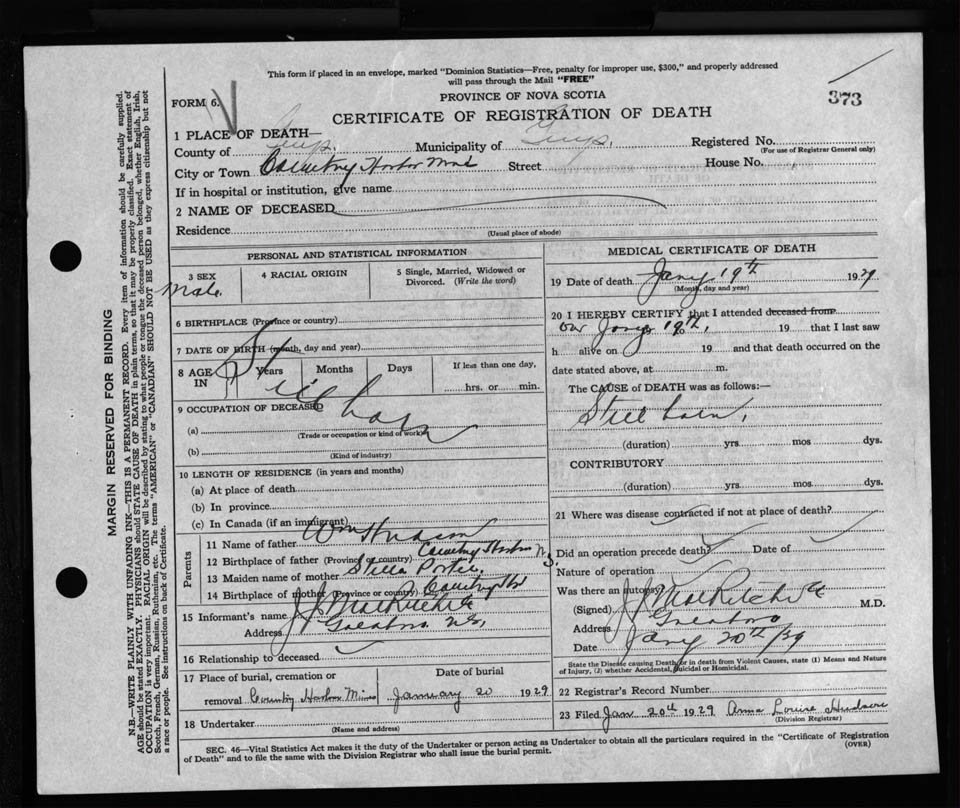 This form if placed in an envelope, marked "Dominion Statistics—Free, penalty for improper use, $300," and properly addressed
will pass through the Mail "FREE"
FORM 6.
PROVINCE OF NOVA SCOTIA
373
CERTIFICATE OF REGISTRATION OF DEATH
1 PLACE OF DEATH—
County of Guys. Municipality of Guys. Registered No.
(For use of Registrar General only)
City or Town Country Harbor Street House No.
If in hospital or institution, give name
2 NAME OF DECEASED
Residence
(Usual place of abode)
PERSONAL AND STATISTICAL INFORMATION
3 SEX
Male.
4 RACIAL ORIGIN
5 Single, Married, Widowed or
Divorced. (Write the word)
6 BIRTHPLACE (Province or country)
7 DATE OF BIRTH (month, day and year)
8 AGE
IN
Years
Months
Days
If less than one day,
hrs. or min.
Still born
9 OCCUPATION OF DECEASED
(a)
(Trade or occupation or kind of work)
(b)
(Kind of industry)
10 LENGTH OF RESIDENCE (in years and months)
(a) At place of death
(b) In province
(c) In Canada (if an immigrant)
Parents
11 Name of father Wm Hudson
12 Birthplace of father (Province or country) Country Harbor N.S.
13 Maiden name of mother Stella Porter
14 Birthplace of mother (Province or country) Country Hbr
15 Informant's name J. J. MacRitchie
Address Goldboro N.S.
16 Relationship to deceased
17 Place of burial, cremation or
removal Country Harbor Mines
Date of burial
January 20 1929
18 Undertaker
(Name and address)
MEDICAL CERTIFICATE OF DEATH
19 Date of death Jany 19th 1929
(Month, day and year)
20 I HEREBY CERTIFY that I attended deceased from
on Jany 19th, 19 that I last saw
h alive on 19 and that death occurred on the
date stated above, at m.
The CAUSE of DEATH was as follows:—
Still born,
(duration) yrs. mos dys.
CONTRIBUTORY
(duration) yrs. mos. dys.
21 Where was disease contracted if not at place of death?
Did an operation precede death? Date of
Nature of operation
Was there an autopsy
(Signed) J. J. MacRitchie M.D.
Address Goldboro
Date Jany 20th/29
State the Disease causing Death, or in death from Violent Causes, state (1) Means and Nature
of Injury, (2) whether Accidental, Suicidal or Homicidal.
22 Registrar's Record Number
23 Filed Jan. 20th 1929 Anna Louise Hudson
(Division Registrar)
SEC. 46—Vital Statistics Act makes it the duty of the Undertaker or person acting as Undertaker to obtain all the particulars required in the "Certificate of Registration
of Death" and to file the same with the Division Registrar who shall issue the burial permit.
(OVER)
MARGIN RESERVED FOR BINDING
N.B.—WRITE PLAINLY WITH UNFADING INK—THIS IS A PERMANENT RECORD. Every item of information should be carefully supplied.
AGE should be stated EXACTLY. PHYSICIANS should STATE CAUSE OF DEATH in plain terms, so that it may be properly classified. Exact statement of
OCCUPATION is very important. RACIAL ORIGIN will be described by stating to what people or tongue the deceased person belonged, whether English, Irish,
Scotch, French, German, Russian, Ruthenian, etc. The terms "AMERICAN" or "CANADIAN" SHOULD NOT BE USED as they express citizenship but not
a race or people. See instructions on back of Certificate.